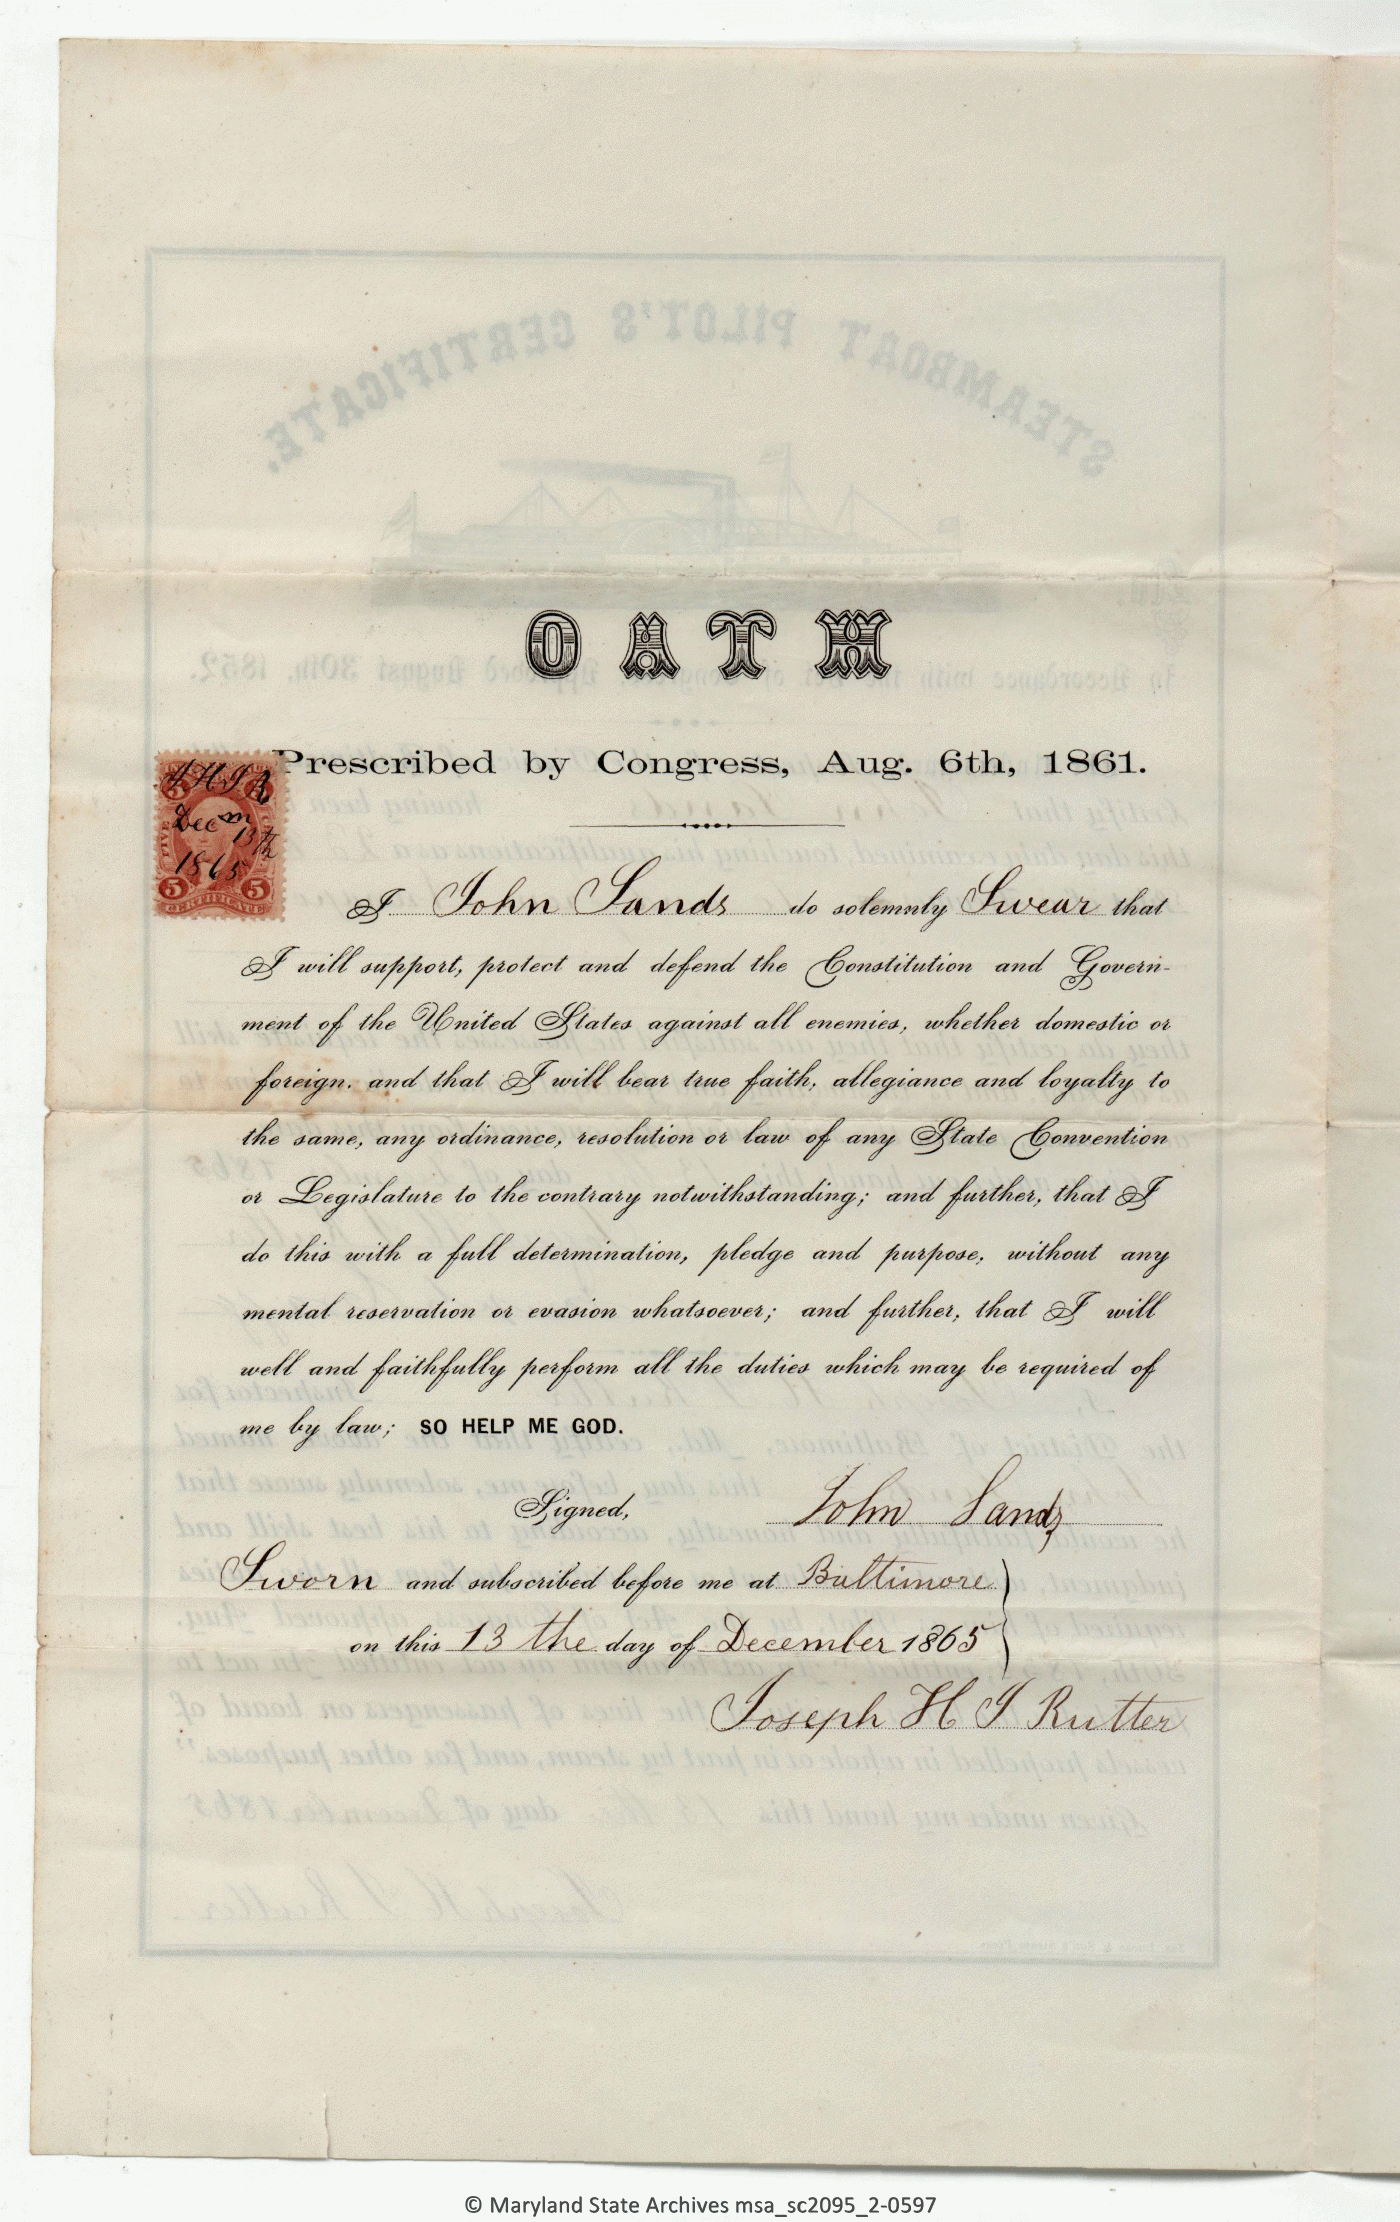 OATH
Prescribed by Congress, Aug. 6th, 1861.
J H I R
Dec m
13th
1865
5 5
CERTIFICATE
I John Sands do solemnly Swear that
I will support, protect and defend the Constitution and Govern-
ment of the United States against all enemies, whether domestic or
foreign. and that I will bear true faith, allegiance and loyalty to
the same, any ordinance, resolution or law of any State Convention
or Legislature to the contrary notwithstanding; and further, that I
do this with a full determination, pledge and purpose, without any
mental reservation or evasion whatsoever; and further, that I will
well and faithfully perform all the duties which may be required of
me by law; SO HELP ME GOD.
Signed, John Sands
Sworn and subscribed before me at Baltimore
on this 13 the day of December 1865
Joseph H I Rutter
© Maryland State Archives msa_sc2095_2-0597